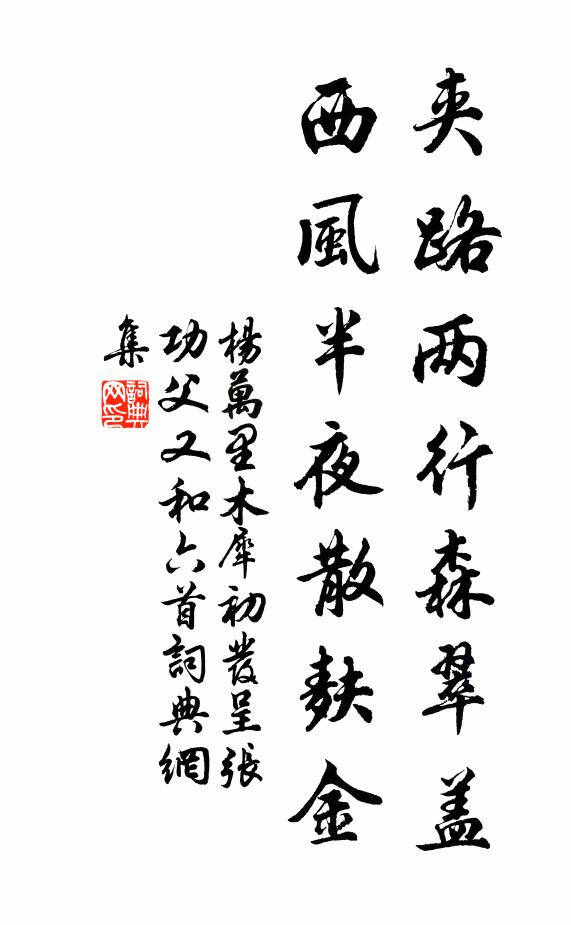 夹路两行森翠盖
西風半夜散麸金
楊萬里木犀初發呈張
功父又和六首詞典網
集
詞典
网印